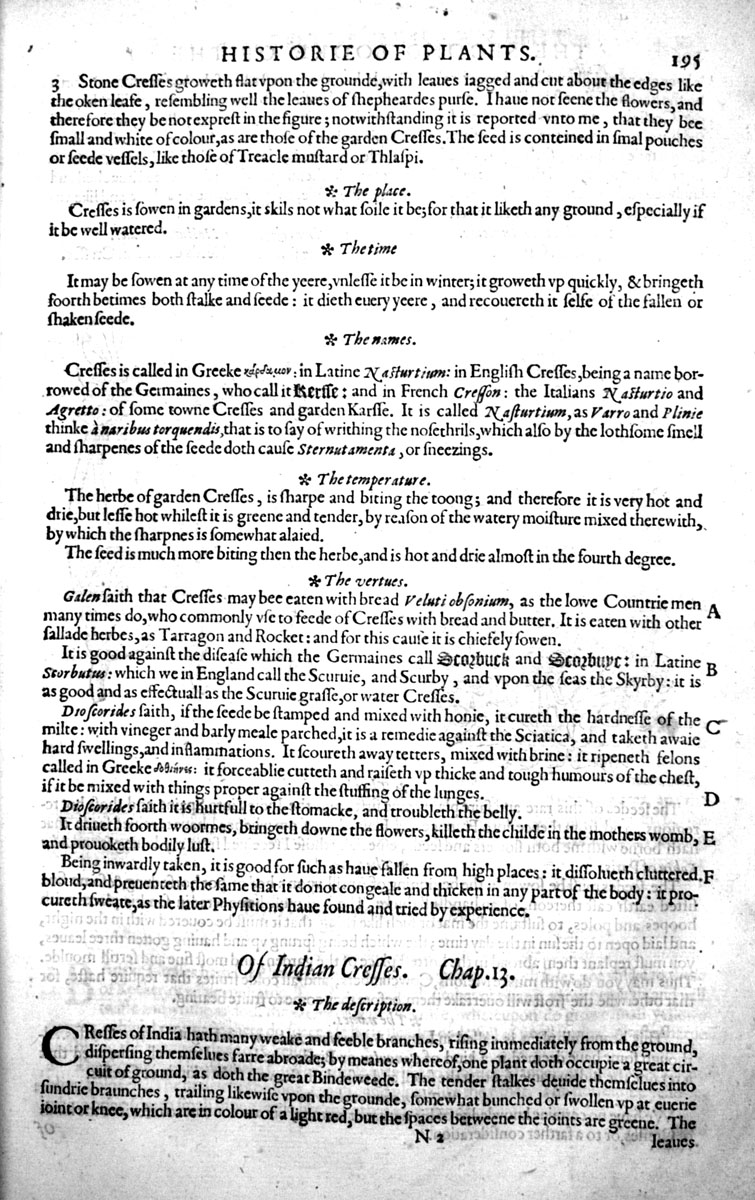 HISTORIE OF PLANTS. 195
3 Stone Cresses groweth flat vpon the grounde, with leaues iagged and cut about the edges like
the oken leafe, resembling well the leaues of shepheardes purse. I haue not seene the flowers, and
therefore they be not exprest in the figure; notwithstanding it is reported vnto me, that they bee
small and white of colour, as are those of the garden Cresses. The seed is conteined in smal pouches
or seede vessels, like those of Treacle mustard or Thlaspi.
✻ The place.
Cresses is sowen in gardens, it skils not what soile it be; for that it liketh any ground, especially if
it be well watered.
✻ The time
It may be sowen at any time of the yeere, vnlesse it be in winter; it groweth vp quickly, & bringeth
foorth betimes both stalke and seede: it dieth euery yeere, and recouereth it selfe of the fallen or
shaken seede.
✻ The names.
Cresses is called in Greeke κάρδαμον: in Latine Nasturtium: in English Cresses, being a name bor-
rowed of the Germaines, who call it Kersse: and in French Cresson: the Italians Nasturtio and
Agretto: of some towne Cresses and garden Karsse. It is called Nasturtium, as Varro and Plinie
thinke à naribus torquendis, that is to say of writhing the nosethrils, which also by the lothsome smell
and sharpenes of the seede doth cause Sternutamenta, or sneezings.
✻ The temperature.
The herbe of garden Cresses, is sharpe and biting the toong; and therefore it is very hot and
drie, but lesse hot whilest it is greene and tender, by reason of the watery moisture mixed therewith,
by which the sharpnes is somewhat alaied.
The seed is much more biting then the herbe, and is hot and drie almost in the fourth degree.
✻ The vertues.
Galen saith that Cresses may bee eaten with bread Veluti obsonium, as the lowe Countrie men A
many times do, who commonly vse to feede of Cresses with bread and butter. It is eaten with other
sallade herbes, as Tarragon and Rocket: and for this cause it is chiefely sowen.
It is good against the disease which the Germaines call Scorbuck and Scorbuye: in Latine B
Scorbutus: which we in England call the Scuruie, and Scurby, and vpon the seas the Skyrby: it is
as good and as effectuall as the Scuruie grasse, or water Cresses.
Dioscorides saith, if the seede be stamped and mixed with honie, it cureth the hardnesse of the C
milte: with vineger and barly meale parched, it is a remedie against the Sciatica, and taketh awaie
hard swellings, and inflammations. It scoureth away tetters, mixed with brine: it ripeneth felons
called in Greeke it forceablie cutteth and raiseth vp thicke and tough humours of the chest,
if it be mixed with things proper against the stuffing of the lunges.
Dioscorides saith it is hurtfull to the stomacke, and troubleth the belly. D
It driueth foorth woormes, bringeth downe the flowers, killeth the childe in the mothers womb, E
and prouoketh bodily lust.
Being inwardly taken, it is good for such as haue fallen from high places: it dissolueth cluttered F
bloud, and preuenteth the same that it do not congeale and thicken in any part of the body: it pro-
cureth sweate, as the later Physitions haue found and tried by experience.
Of Indian Cresses. Chap. 13.
✻ The description.
CResses of India hath many weake and feeble branches, rising immediately from the ground,
dispersing themselues farre abroade; by meanes whereof, one plant doth occupie a great cir-
cuit of ground, as doth the great Bindeweede. The tender stalkes deuide themselues into
sundrie braunches, trailing likewise vpon the grounde, somewhat bunched or swollen vp at euerie
ioint or knee, which are in colour of a light red, but the spaces betweene the ioints are greene. The
N 2 leaues